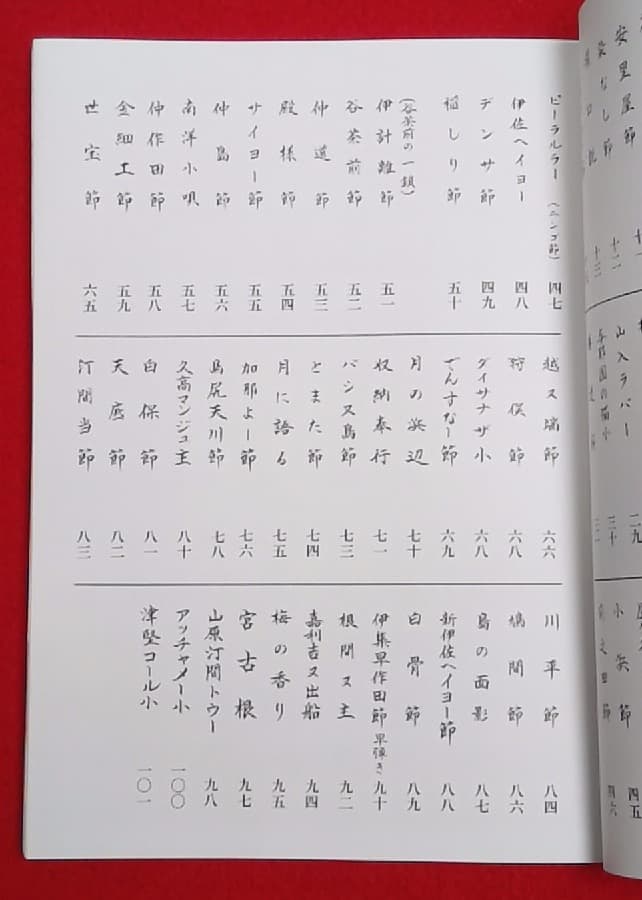 ピーラルラー（ニンゴ節） 四七
伊佐ヘイヨー 四八
デンサ節 四九
稲しり節 五十
（谷茶前の一鎖）
伊計離節 五一
谷茶前 五二
仲道節 五三
殿様節 五四
サイヨー節 五五
仲島節 五六
南洋小唄 五七
仲作田節 五八
金細工節 五九
世宝節 六五
越ヌ端節 六六
狩俣節 六八
ダイサナザ小 六八
でんすなー節 六九
月の浜辺 七十
収納奉行 七一
バシヌ島節 七三
とまた節 七四
月に語る 七五
加那よー節 七六
島尻天川節 七八
久高マンジュ主 八十
白保節 八一
天底節 八二
汀間当節 八三
川平節 八四
鳩間節 八六
島の面影 八七
新伊佐ヘイヨー節 八八
白骨節 八九
伊集早作田節 早弾き 九十
根間ヌ主 九二
嘉利吉ヌ出船 九四
梅の香り 九五
宮古根 九七
山原汀間トウー 九八
アッチャメー小 一〇〇
津堅コール小 一〇一
安里屋節 十二
十三
山入ラバー 三十
与那国の猫小
二九
四五
四六